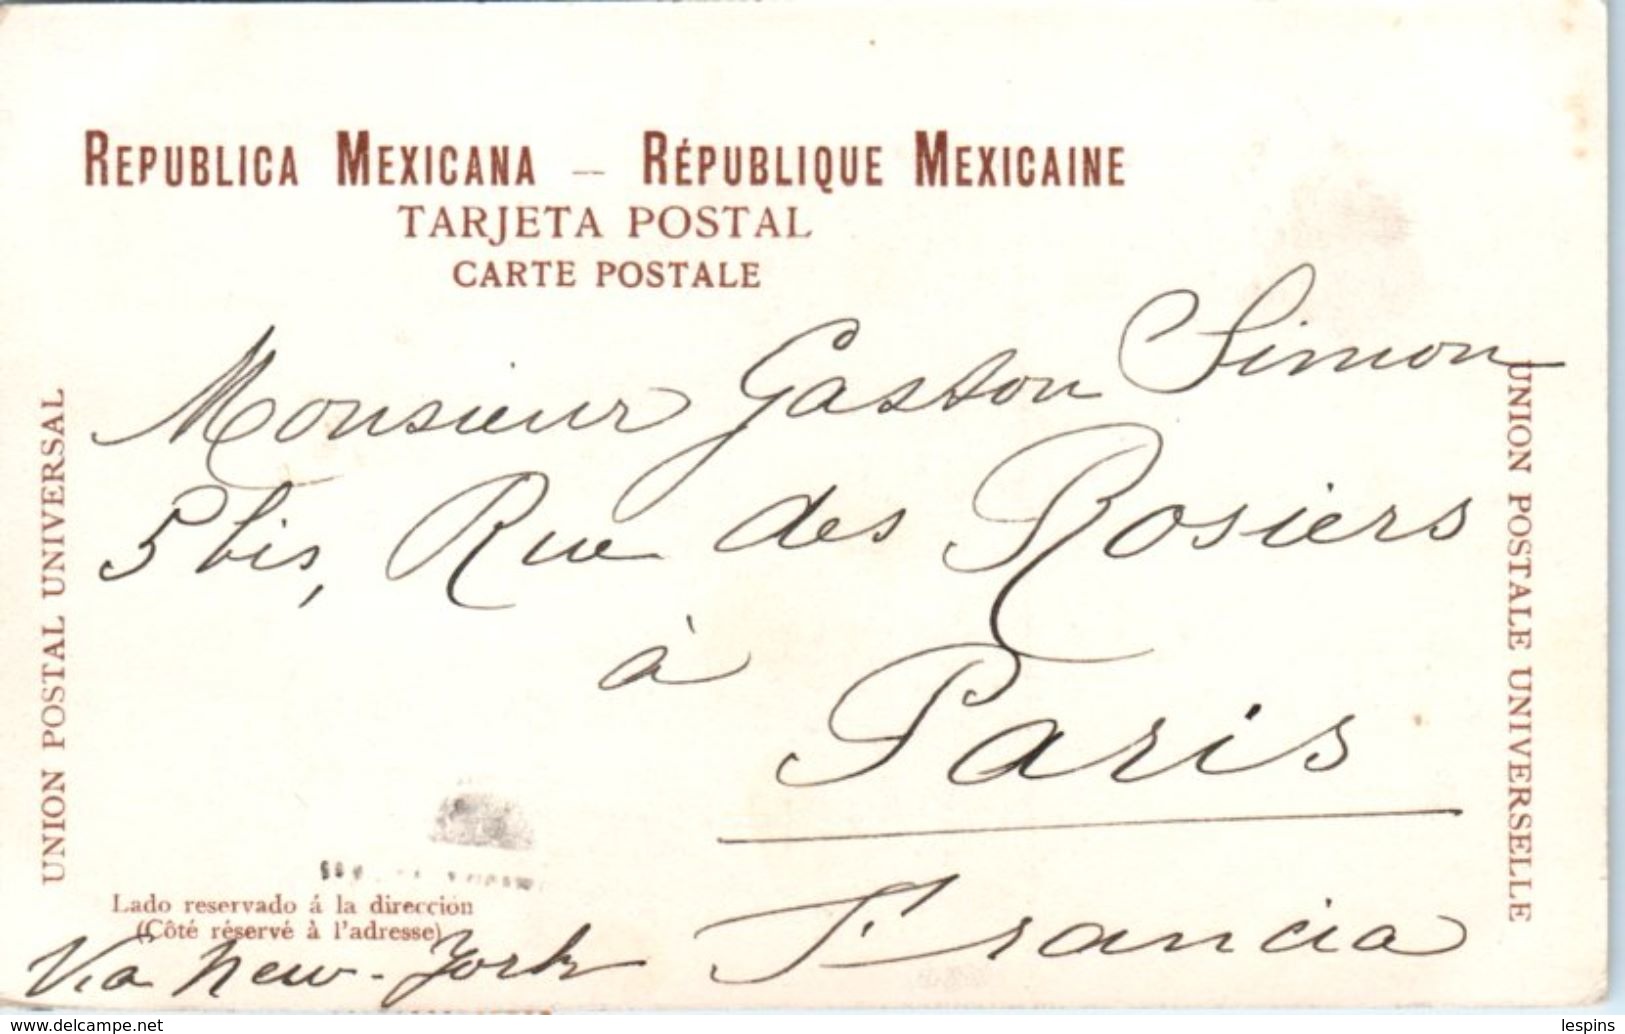 REPUBLICA MEXICANA — RÉPUBLIQUE MEXICAINE
TARJETA POSTAL
CARTE POSTALE
UNION POSTAL UNIVERSAL
UNION POSTALE UNIVERSELLE
Monsieur Gaston Simon
5 bis, Rue des Rosiers
à
Paris
Francia
Lado reservado á la dirección
(Côté réservé à l'adresse)
Via New-York
www.delcampe.net
lespins